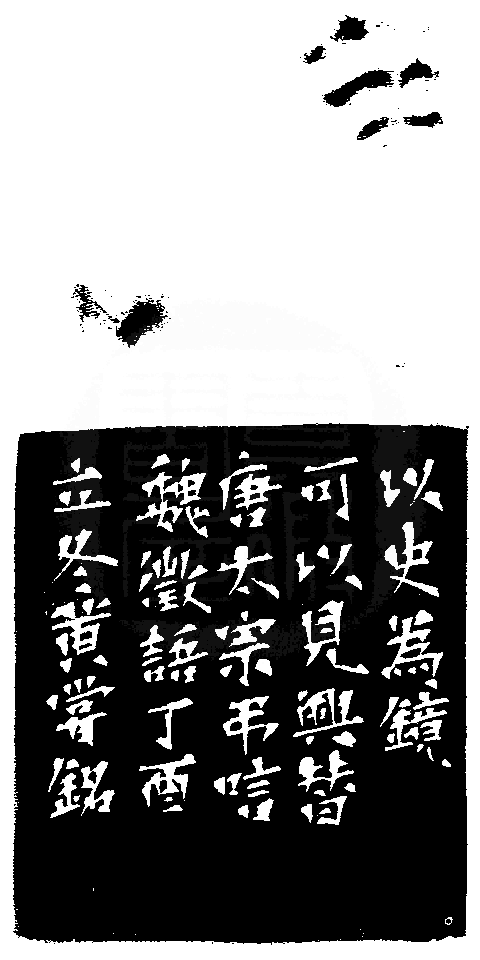 以史為鏡
可以見興替
唐太宗弔唁
魏徵語丁酉
立冬黄嘗銘